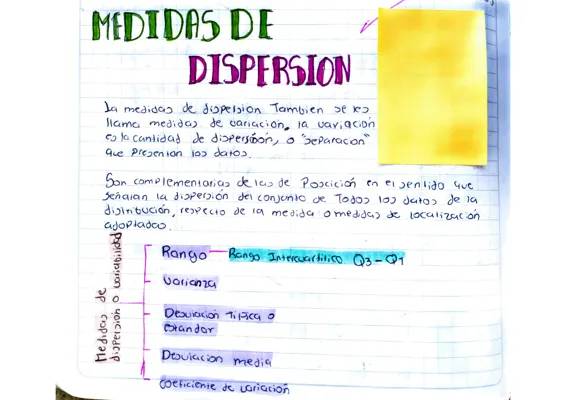 MEDIDAS DE
DISPERSION
La medidas de dispersion Tambien se les
llama medidas de variación, la variación
es la cantidad de dispersión, o "separacon"
que presentan los datos.
Son complementarias de las de Posicición en el sentido que
señalan la dispersión del conjunto de Todos los datos de la
distribución, respecto de la medida o medidas de localización
adoptadas.
Medidas de
dispersión o variabilidad
Rango - Rango Intercuartilico Q3 - Q1
Varianza
Desviación Tipica o
estandar
Desviacion media
Coeficiente de variación